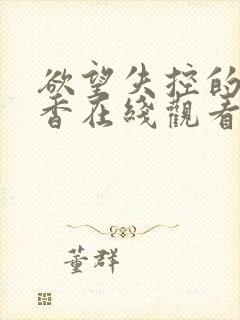 欲望失控的
香在线觀看
董群